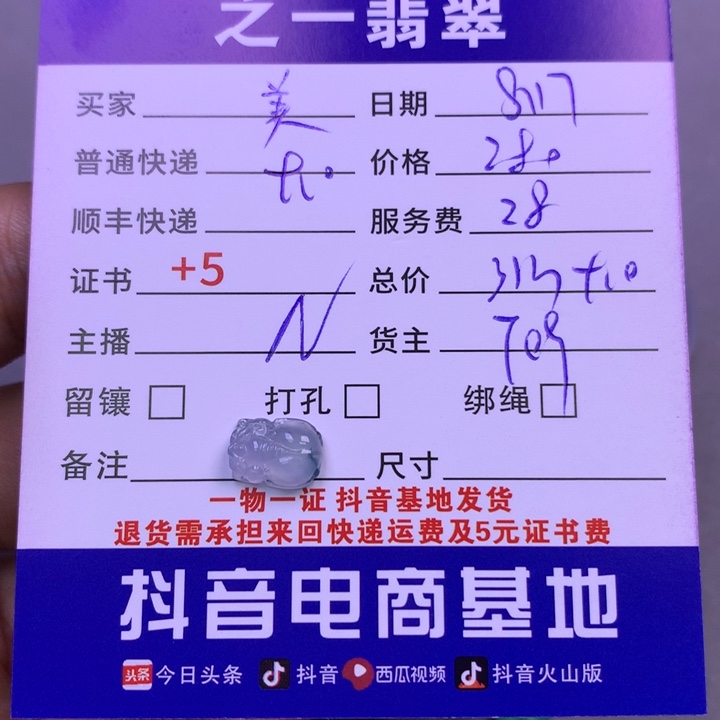 之一翡翠
买家 美 日期 8/17
普通快递 +10 价格 280
顺丰快递 服务费 28
证书 +5 总价 313 +10
主播 N 货主 T09
留镶 打孔 绑绳
备注 尺寸
一物一证 抖音基地发货
退货需承担来回快递运费及5元证书费
抖音电商基地
头条 今日头条 抖音 西瓜视频 抖音火山版